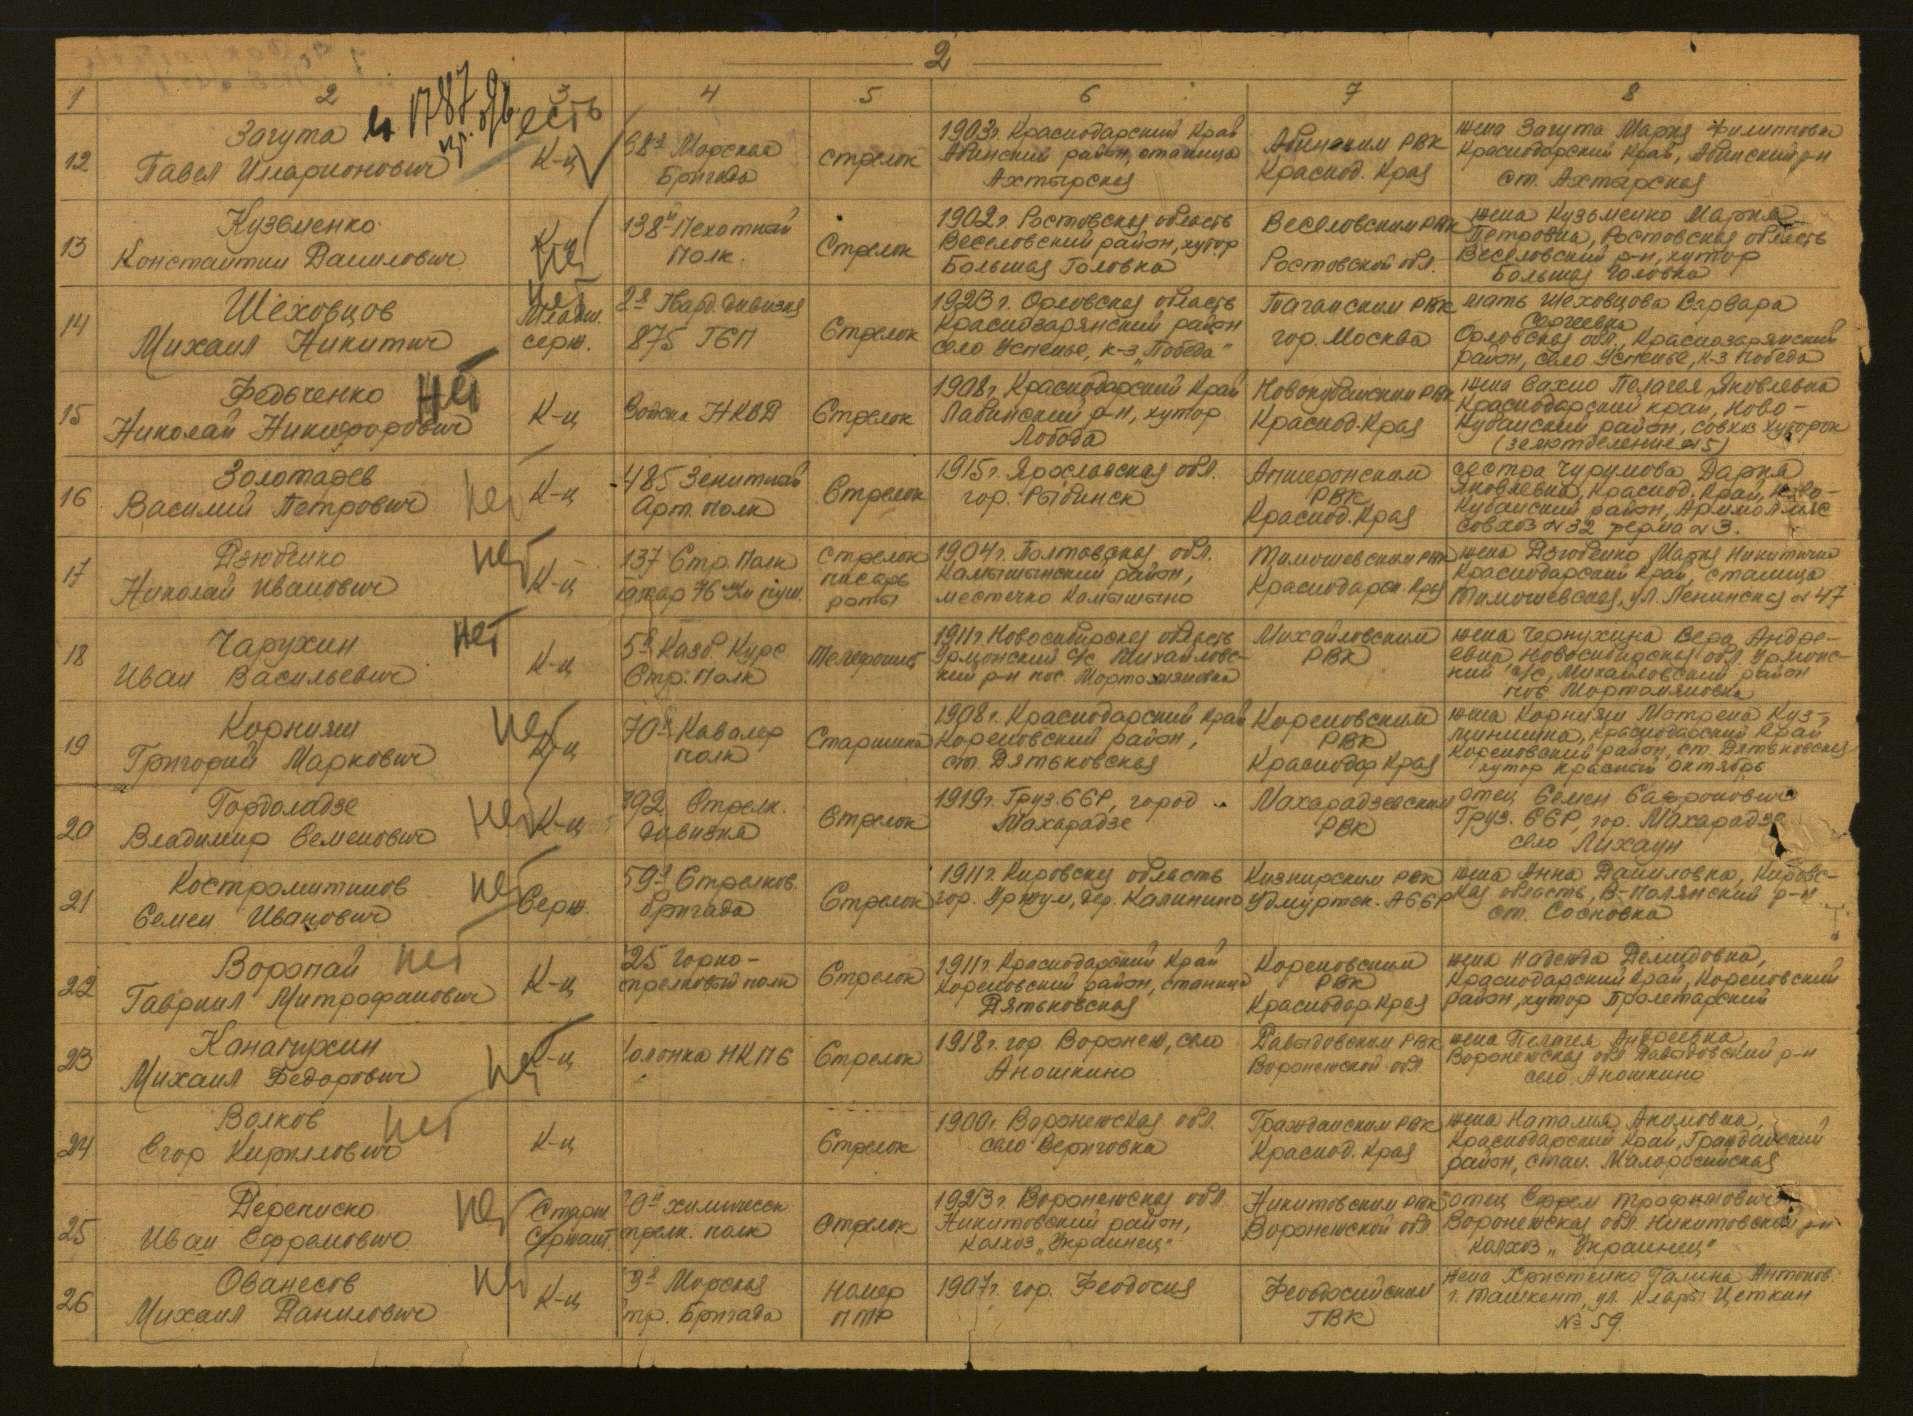 2
1 2 3 4 5 6 7 8
12
Загута
Павел Иларионович
есть
К-ц
68я Морская
Бригада
стрелок
1903г. Краснодарский Край
Абинский район, станица
Ахтырская
Абинским РВК
Краснод. Края
жена Загута Мария Филипповна
Краснодарский Край, Абинский р-н
ст. Ахтырская
13
Кузьменко
Константин Данилович
К-ц
нет
138й Пехотный
Полк.
Стрелок
1902г Ростовская область
Веселовский район, хутор
Большая Таловка
Веселовским РВК
Ростовской обл.
жена Кузьменко Мария
Петровна, Ростовская область
Веселовский р-н, хутор
Большая Таловка
14
Шеховцов
Михаил Никитич
нет
Младш.
серж.
2я Гвард. дивизия
875 ГСП
Стрелок
1923г. Орловская область
Краснозарянский район
село Успенье, к-з „Победа"
Таганским РВК
гор. Москва
мать Шеховцова Варвара
Сергеевна
Орловская обл., Краснозарянский
район, село Успенье, к-з Победа
15
Федьченко
Николай Никифорович
нет
К-ц
Войска НКВД
Стрелок
1908г, Краснодарский Край
Лабинский р-н, хутор
Лобода
Новокубанским РВК
Краснод. Края
жена Вахно Пелагея Яковлевна
Краснодарский край, Ново-
Кубанский район, совхоз хуторок
16
Золотарев
Василий Петрович
нет
К-ц
485 Зенитный
Арт. полк
Стрелок
1915г. Ярославская обл.
гор. Рыбинск
Апшеронским
РВК
Краснод. Края
сестра Чурилова Дарья
Яковлевна, Краснод. Край, Ново-
Кубанский район,
совхоз №32 ферма №3.
17
Дзюбенко
Николай Иванович
нет
К-ц
137 Стр. Полк
76 мм пуш.
стрелок
писарь
роты
1904г. Полтавская обл.
Камышынский район,
местечко Камышыно
Тимошевским РВК
Краснодарск. Края
жена Дзюбенко Мария Никитична
Краснодарский Край, станица
Тимошевская, ул. Ленинская №47
18
Чарухин
Иван Васильевич
нет
К-ц
Стр. Полк
Телефонист
1911г. Новосибирская область
с/с Михайловс-
кий р-н пос.
Михайловским
РВК
жена Чернухина Вера Андре-
евна, Новосибирская обл.
кий с/с, Михайловский район
пос
19
Корнияш
Григорий Маркович
нет
К-ц
70й Кавалер
полк
Старшина
1908г. Краснодарский Край
Кореновский район,
ст. Дятьковская
Кореновским
РВК
Краснодар Края
жена Корнияш Матрена Куз-
минична, Краснодарский Край
Кореновский район, ст. Дятьковская
хутор Красный Октябрь
20
Гордоладзе
Владимир Семенович
нет
К-ц
392 Стрелк.
дивизия
Стрелок
1919г. Груз. ССР, город
Махарадзе
Махарадзевским
РВК
отец Семен Сафронович
Груз. ССР, гор. Махарадзе
село Лихаун
21
Костромитинов
Семен Иванович
нет
Серж.
59я Стрелков.
бригада
Стрелок
1911г. Кировская область
гор. Уржум, дер. Калинино
Кизнирским РВК
Удмуртск. АССР
жена Анна Даниловна, Кировс-
кая область, В-Полянский р-н
ст. Сосновка
22
Воропай
Гавриил Митрофанович
нет
К-ц
25 горно-
стрелковый полк
Стрелок
1911г. Краснодарский Край
Кореновский район, станица
Дятьковская
Кореновским
РВК
Краснодар. Края
жена Надежда Демидовна,
Краснодарский Край, Кореновский
район, хутор Пролетарский
23
Канатухин
Михаил Федорович
нет
К-ц
Колонка НКПС
Стрелок
1918г. гор. Воронеж, село
Аношкино
Давыдовским РВК
Воронежской обл.
жена Пелагея Андреевна,
Воронежская обл Давыдовский р-н
село Аношкино
24
Волков
Егор Кириллович
нет
К-ц
Стрелок
1900г. Воронежская обл.
село Вериговка
Гражданским РВК
Краснод. Края
жена Наталия Акимовна,
Краснодарский Край, Гражданский
район, стан. Малороссийская
25
Дереписко
Иван Ефремович
нет
Старш
Сержант.
химическ
стрелк. полк
Стрелок
1923г. Воронежская обл.
Никитовский район,
колхоз „Украинец"
Никитовским РВК
Воронежской обл.
отец Ефрем Трофимович
Воронежская обл. Никитовский р-н
колхоз „Украинец"
26
Ованесов
Михаил Данилович
нет
К-ц
Морская
стр. Бригада
Номер
ПТР
1907г. гор. Феодосия
Феодосийским
ГВК
жена Христенко Галина Антонов.
г. Ташкент, ул. Клары Цеткин
№ 59.